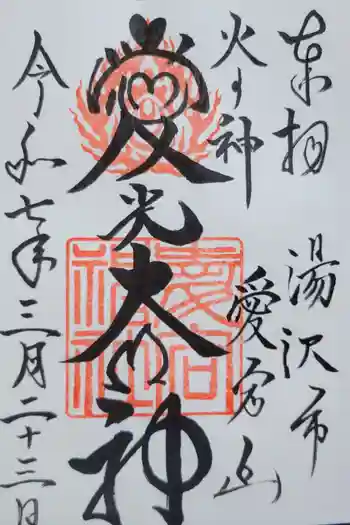 奉拝
湯沢市
愛宕山
火の神
愛光大神
愛宕
神社
令和七年三月二十三日